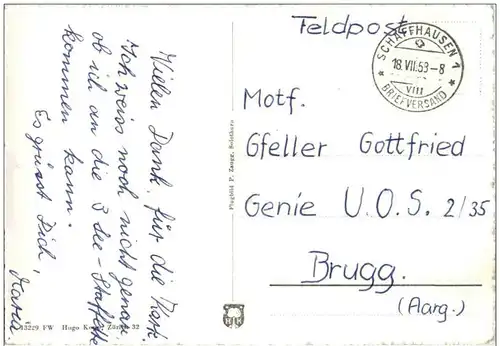 Feldpost
SCHAFFHAUSEN 1
18.VII.53-8
VIII
BRIEFVERSAND
Motf.
Gfeller Gottfried
Genie U.O.S. 2/35
Brugg.
(Aarg.)
Vielen Dank für die Kart.
Ich weiss noch nicht genau,
ob ich an die 3 See-Stafette
kommen kann.
Es grüsst Dich,
Flugbild P. Zaugg, Solothurn
13229 FW Hugo Zürich 32